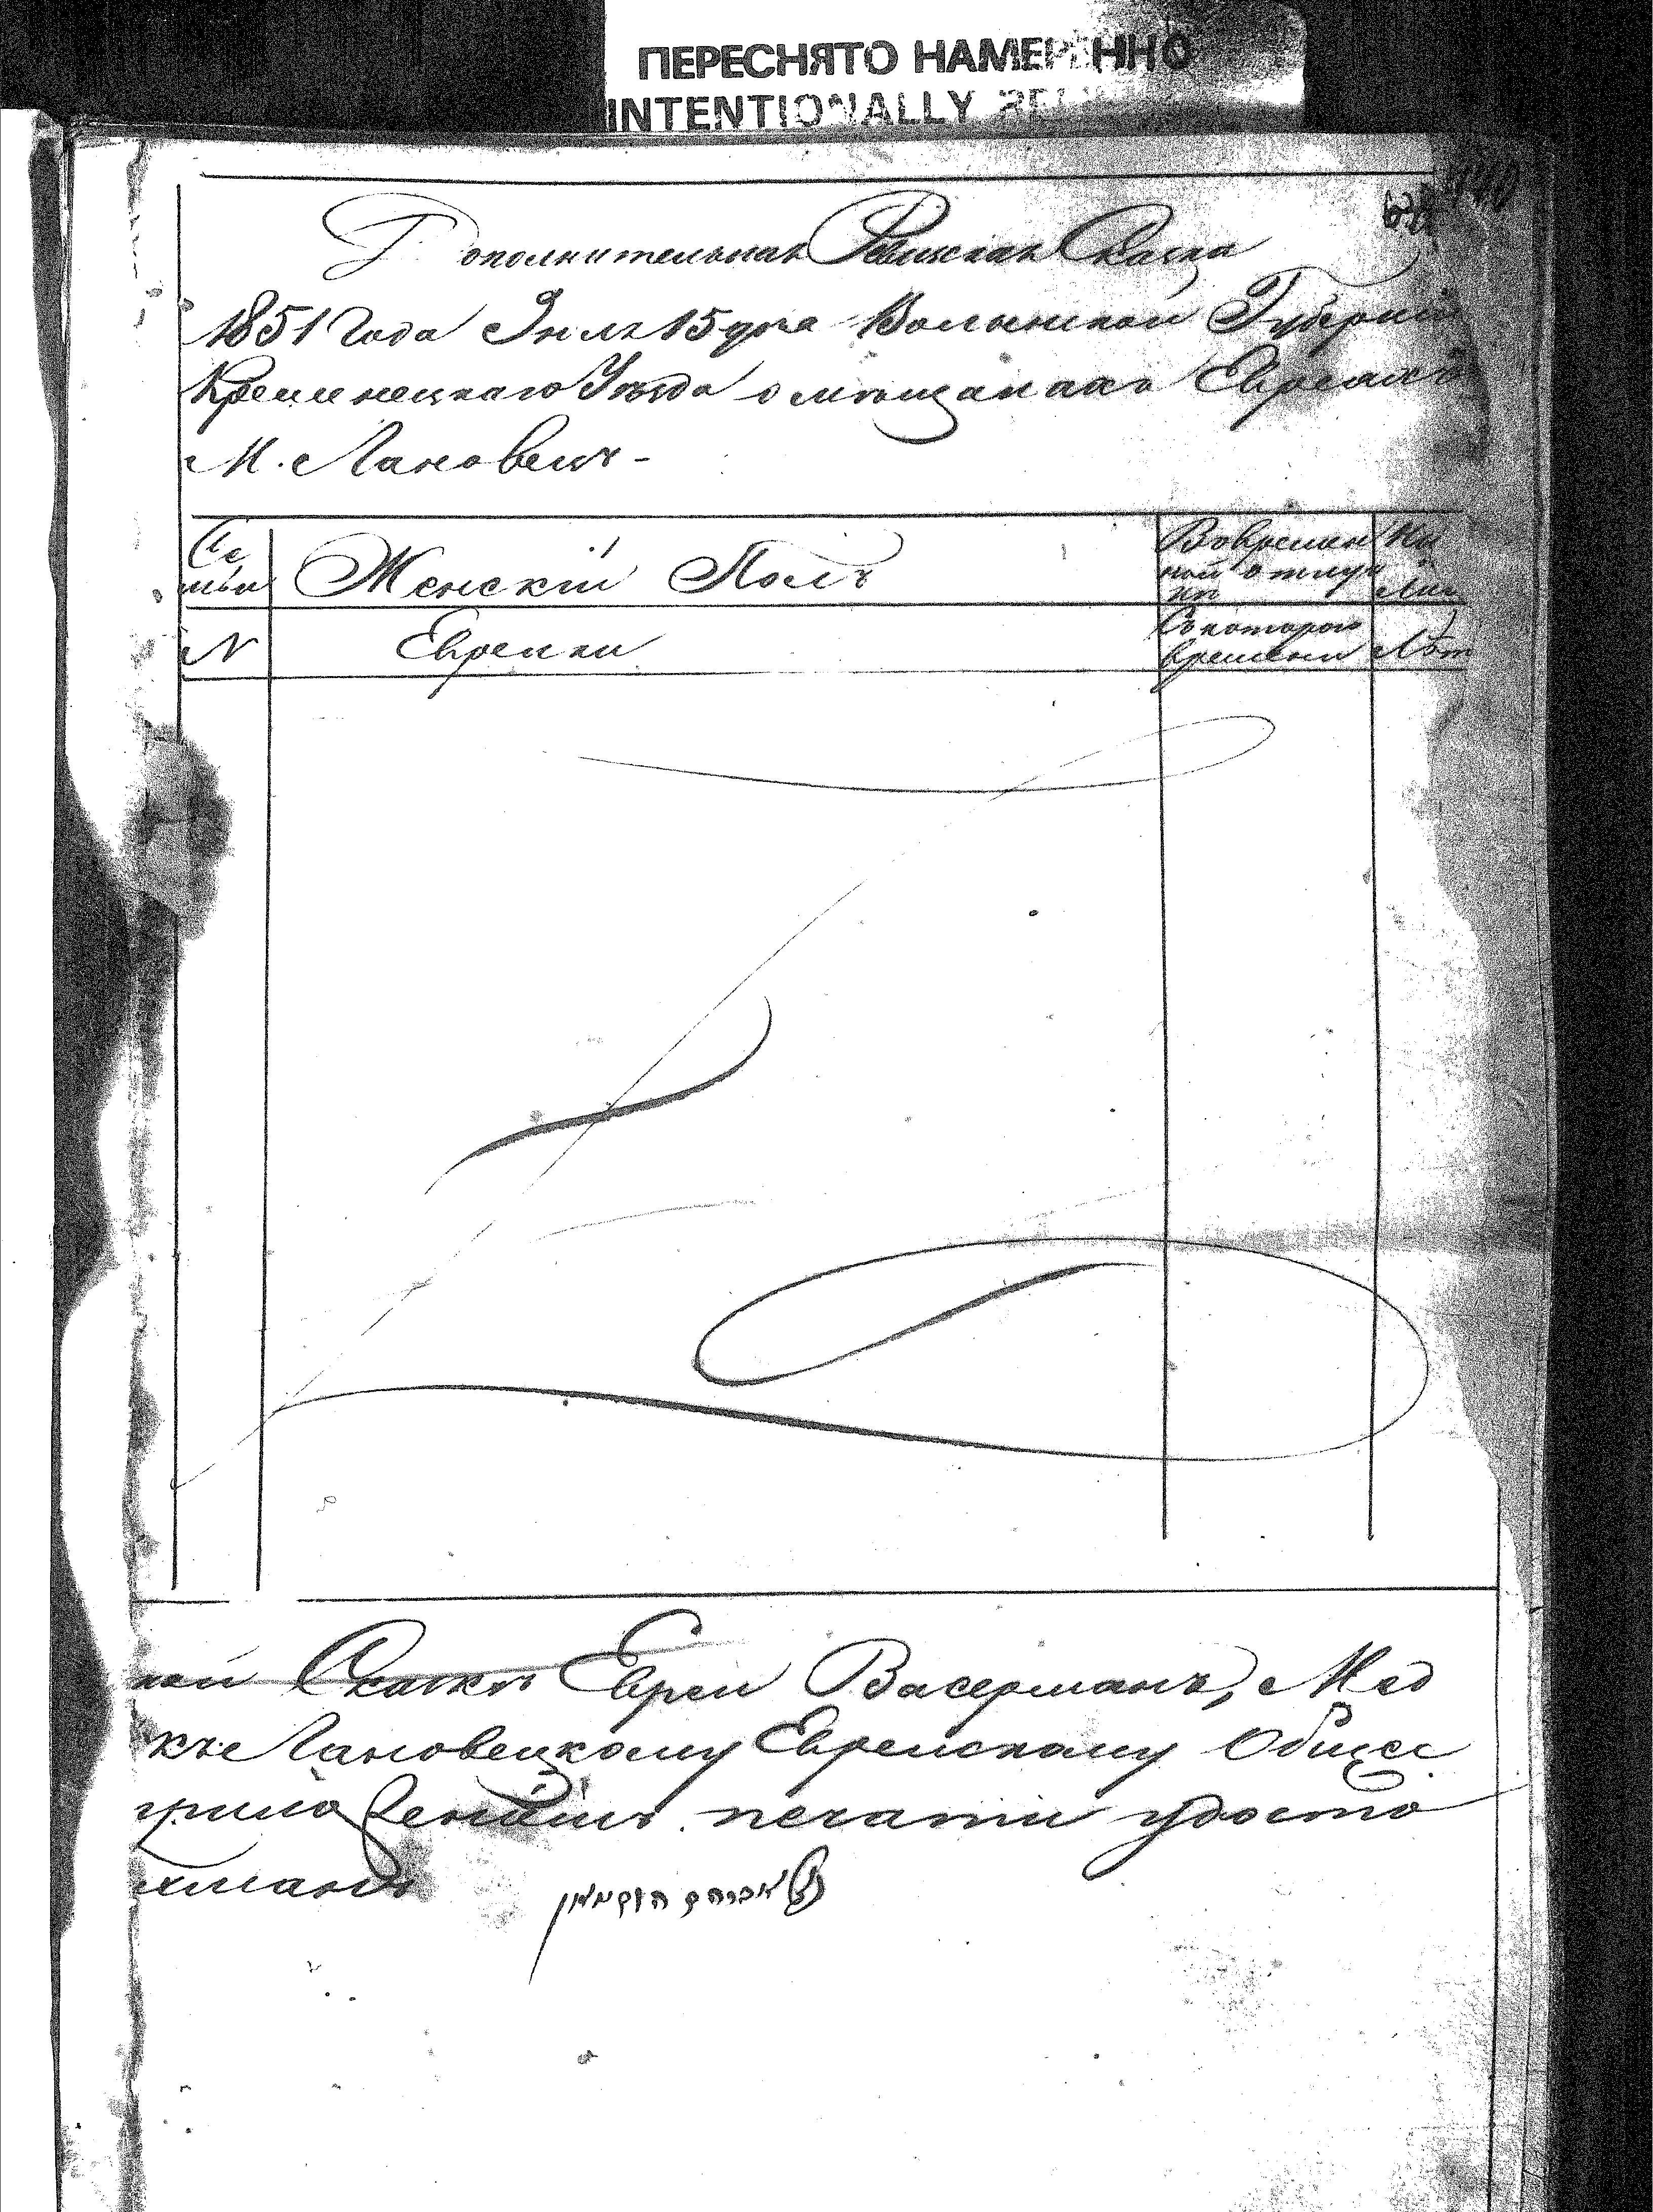 ПЕРЕСНЯТО НАМЕРЕННО
INTENTIONALLY
Дополнительная Ревизская Сказка
1851 Года Июля 15 дня Волынской Губернии
Кременецкаго Уезда о мещанахъ Евреяхъ
М. Лановецъ -
Се Женскій Полъ Вовремен На
мьи ной отлуч
ке Лиц
N Еврейки Съ котораго
времени Летъ
ной Сказке Евреи Васерманъ, Мед
къ Лановецкому Еврейскому Общес
приложеніемъ печати удосто